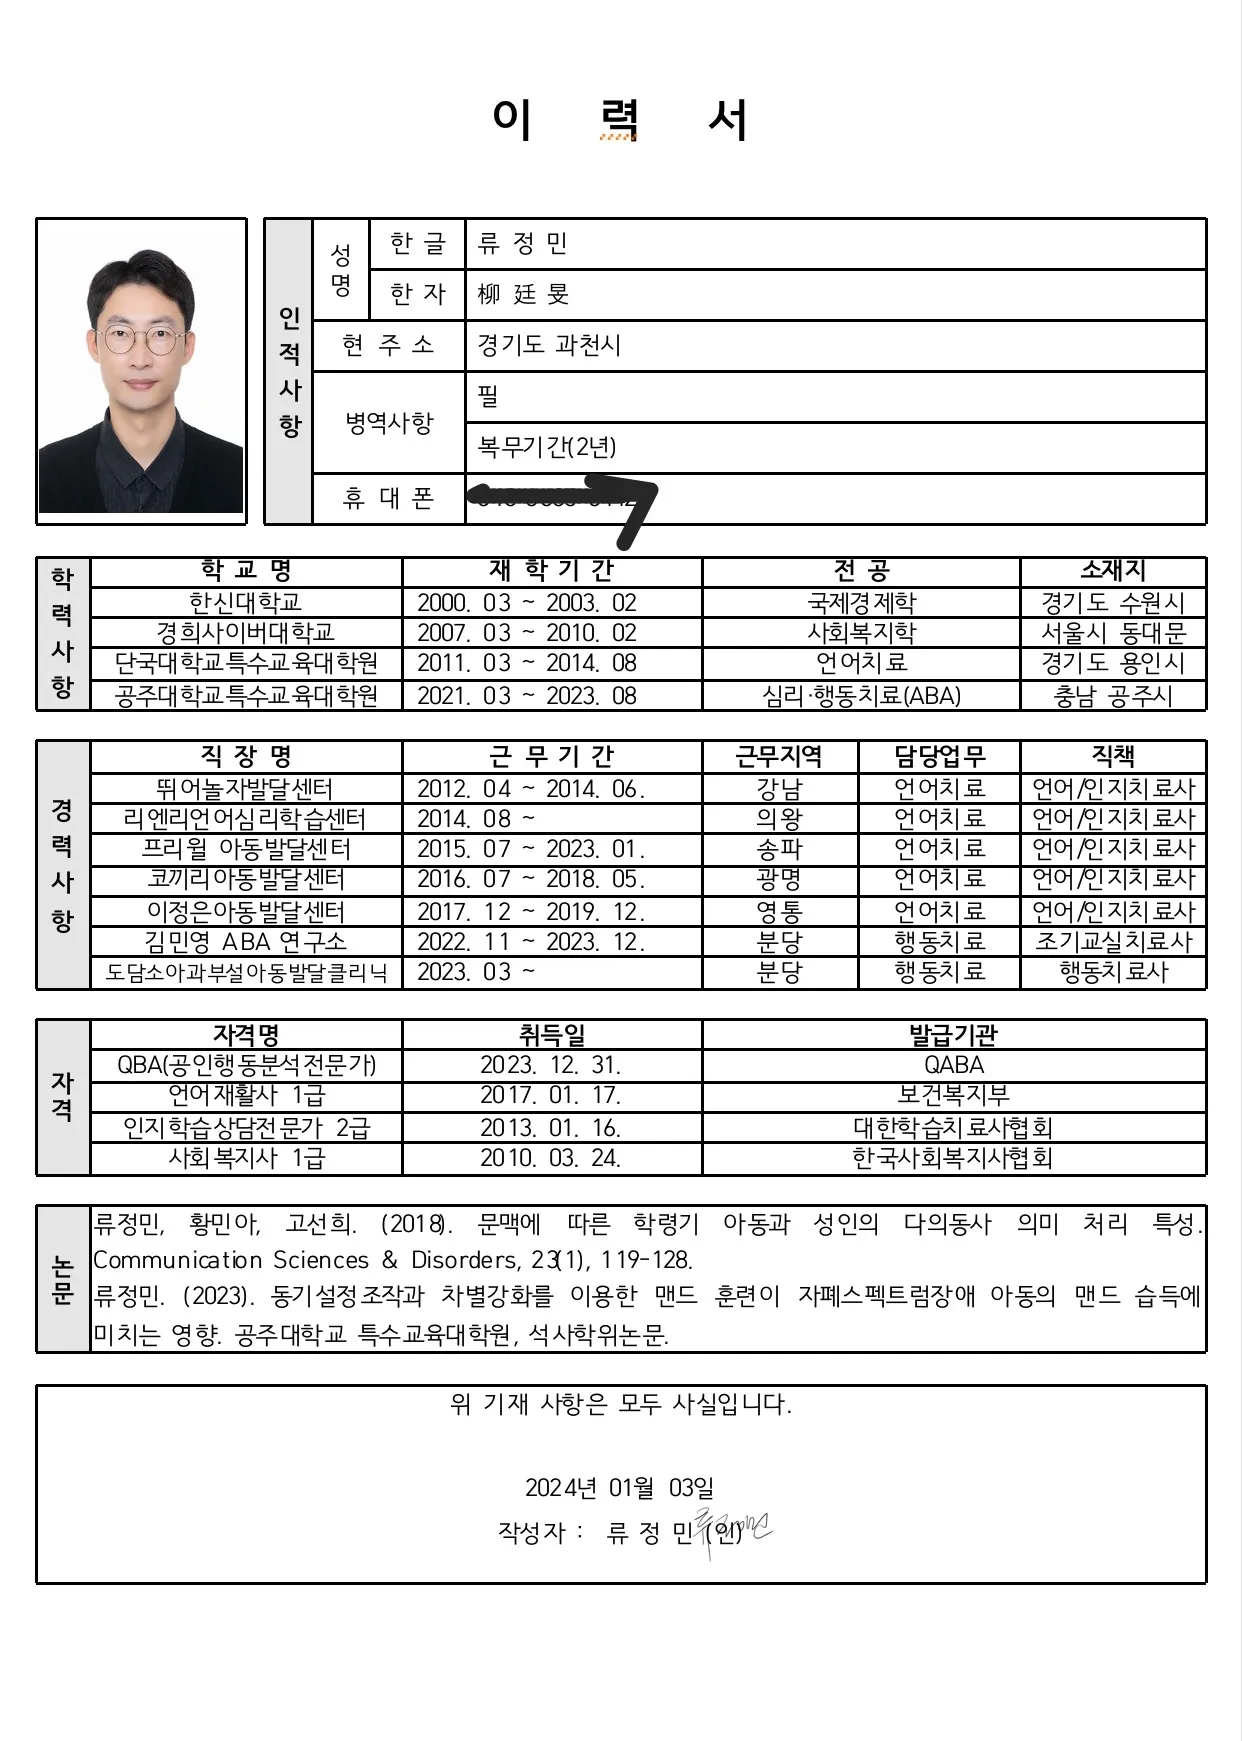 이 력 서
인적사항
성명
한 글
류 정 민
한 자
柳 廷 旻
현 주 소
경기도 과천시
병역사항
필
복무기간(2년)
휴 대 폰
학력사항
학 교 명 재 학 기 간 전 공 소재지
한신대학교 2000. 03 ~ 2003. 02 국제경제학 경기도 수원시
경희사이버대학교 2007. 03 ~ 2010. 02 사회복지학 서울시 동대문
단국대학교특수교육대학원 2011. 03 ~ 2014. 08 언어치료 경기도 용인시
공주대학교특수교육대학원 2021. 03 ~ 2023. 08 심리·행동치료(ABA) 충남 공주시
경력사항
직 장 명 근 무 기 간 근무지역 담당업무 직책
뛰어놀자발달센터 2012. 04 ~ 2014. 06. 강남 언어치료 언어/인지치료사
리엔리언어심리학습센터 2014. 08 ~ 의왕 언어치료 언어/인지치료사
프리윌 아동발달센터 2015. 07 ~ 2023. 01. 송파 언어치료 언어/인지치료사
코끼리아동발달센터 2016. 07 ~ 2018. 05. 광명 언어치료 언어/인지치료사
이정은아동발달센터 2017. 12 ~ 2019. 12. 영통 언어치료 언어/인지치료사
김민영 ABA 연구소 2022. 11 ~ 2023. 12. 분당 행동치료 조기교실치료사
도담소아과부설아동발달클리닉 2023. 03 ~ 분당 행동치료 행동치료사
자격
자격명 취득일 발급기관
QBA(공인행동분석전문가) 2023. 12. 31. QABA
언어재활사 1급 2017. 01. 17. 보건복지부
인지학습상담전문가 2급 2013. 01. 16. 대한학습치료사협회
사회복지사 1급 2010. 03. 24. 한국사회복지사협회
논문
류정민, 황민아, 고선희. (2018). 문맥에 따른 학령기 아동과 성인의 다의동사 의미 처리 특성.
Communication Sciences & Disorders, 23(1), 119-128.
류정민. (2023). 동기설정조작과 차별강화를 이용한 맨드 훈련이 자폐스펙트럼장애 아동의 맨드 습득에
미치는 영향. 공주대학교 특수교육대학원, 석사학위논문.
위 기재 사항은 모두 사실입니다.
2024년 01월 03일
작성자 : 류 정 민 (인)